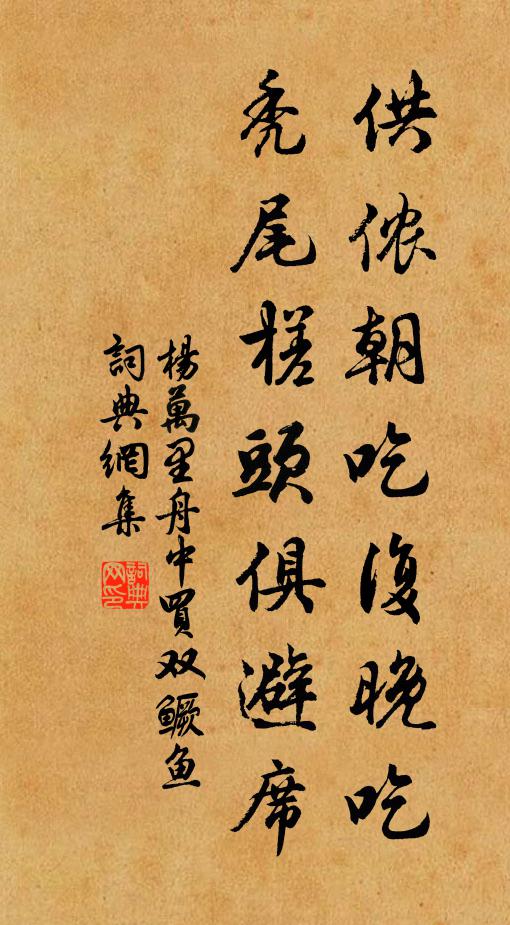 供侬朝吃復晚吃
禿尾槎頭俱避席
楊萬里舟中買双鳜鱼
詞典網集
詞典网印